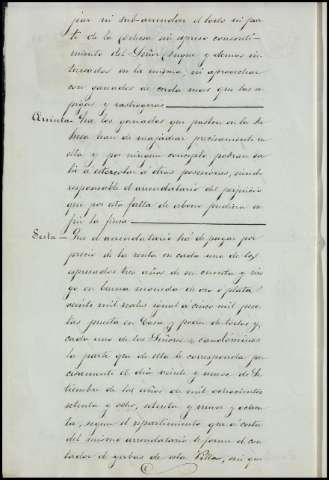 piar ni sub-arrendar el todo ni par
te de la dehesa sin espreso consenti
miento del Señor Duque y demas in
teresados en la misma, ni aprovechar
con ganados de cerda mas que las es
pigas y rastrogeras
Quinta Que los ganados que pasten en la de
hesa han de majadear precisamente en
ella y por ningun concepto podran sa
lir á estercolar á otras posesiones, siendo
responsable el arrendatario del perjuicio
que por esta falta de abono pudiera su
frir la finca
Sesta Que el arrendatario há de pagar por
precio de la renta en cada uno de los
espresados tres años de su cuenta y ries
go en buena moneda de oro ó plata
veinte mil reales igual á cinco mil pese
tas puesta en Casa y poder de todos y
cada uno de los Señores condominos
la parte que de ella le corresponda pre
cisamente el dia veinte y nueve de Se
tiembre de los años de mil ochocientos
setenta y ocho, setenta y nueve y ochen
ta, segun el repartimiento que á costa
del mismo arrendatario le forme el con
tador de yerbas de esta Villa, sin que